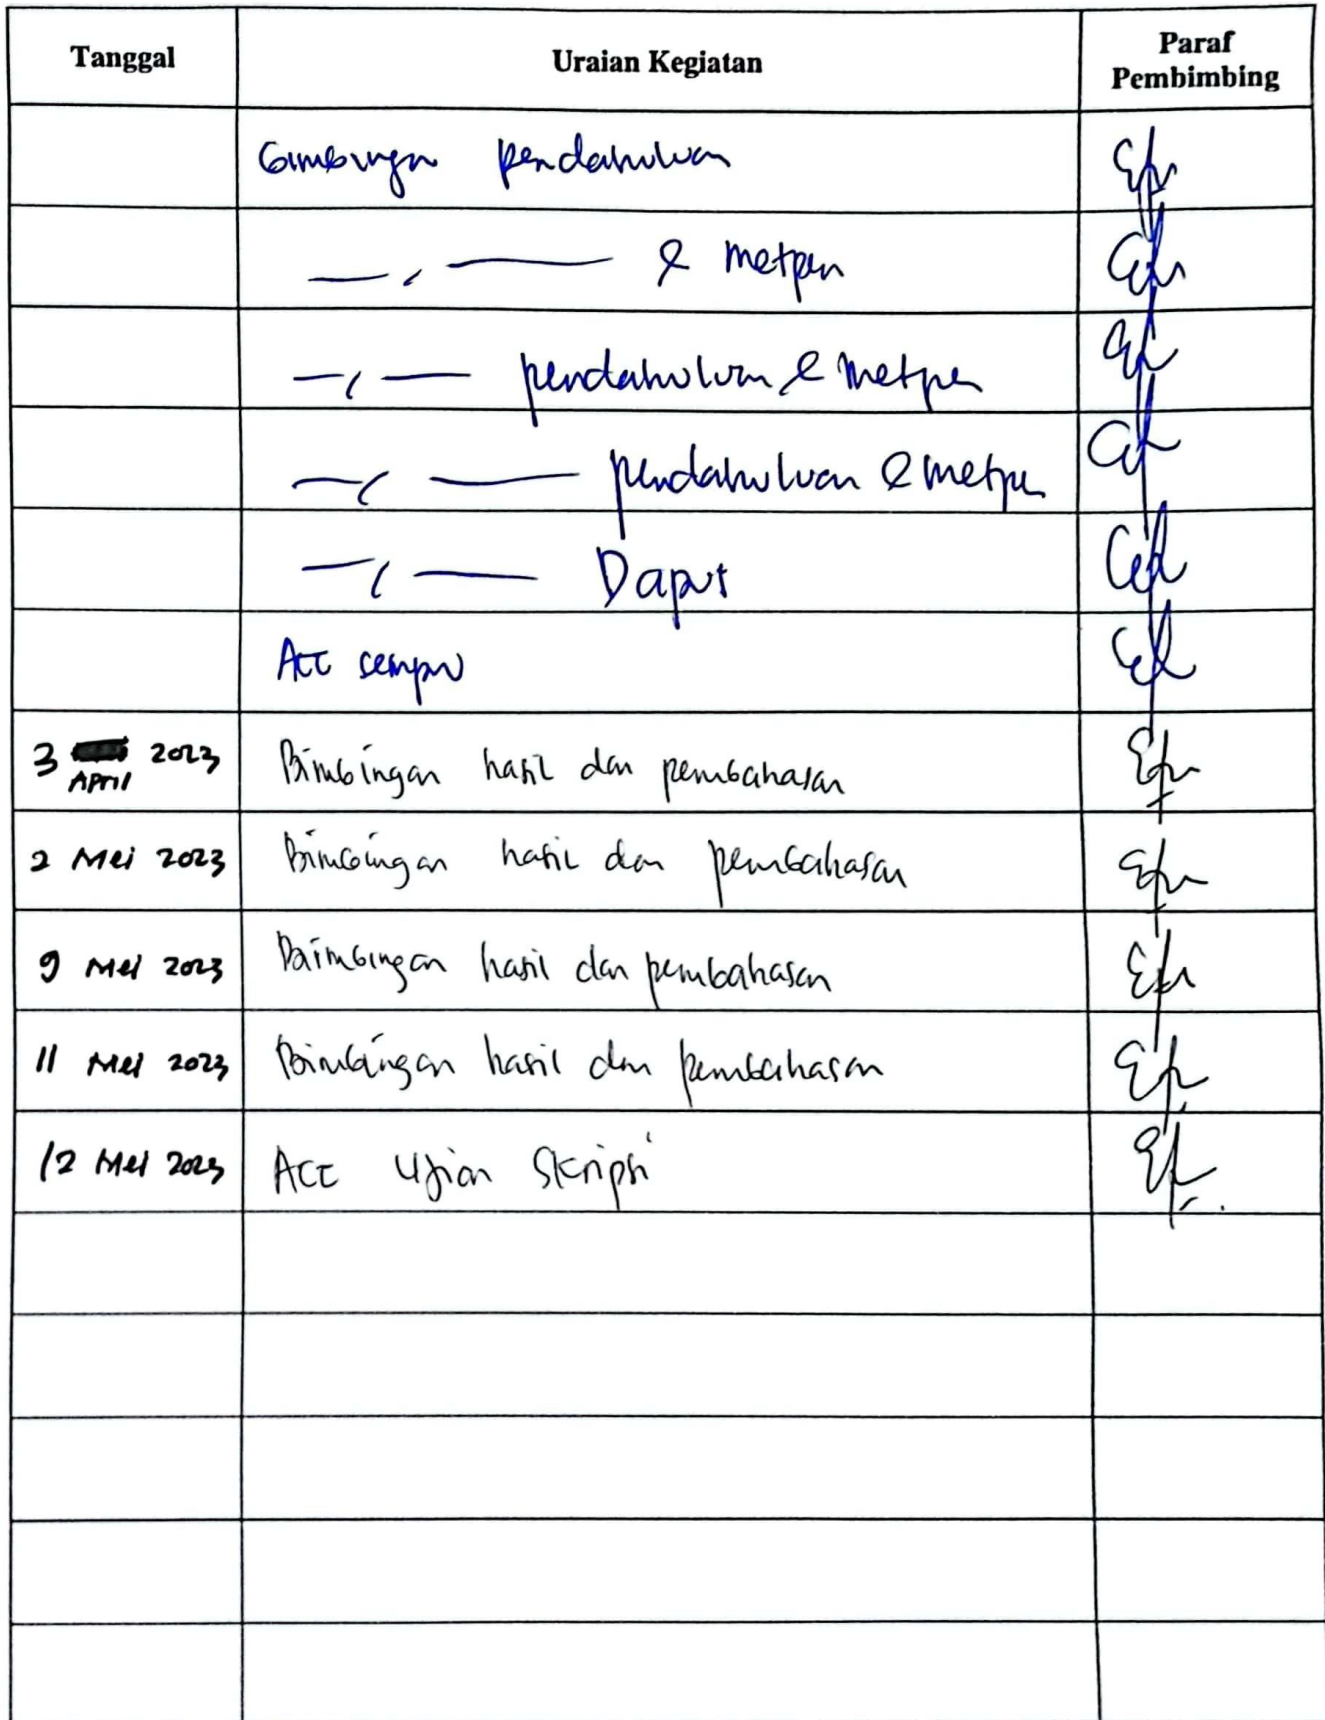 Tanggal Uraian Kegiatan Paraf Pembimbing
bimbingan pendahuluan
— , — & metpen
— , — pendahuluan & metpen
— , — pendahuluan & metpen
— , — Dapus
Acc sempro
3 April 2023 Bimbingan hasil dan pembahasan
2 Mei 2023 Bimbingan hasil dan pembahasan
9 Mei 2023 Baimbingan hasil dan pembahasan
11 Mei 2023 Bimbingan hasil dan pembahasan
12 Mei 2023 Acc Ujian Skripsi